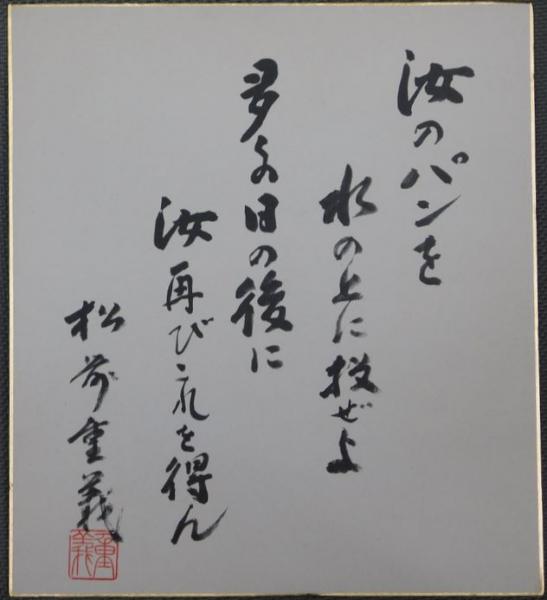 汝のパンを
水の上に投ぜよ
多くの日の後に
汝再びこれを得ん
松前重義
重義